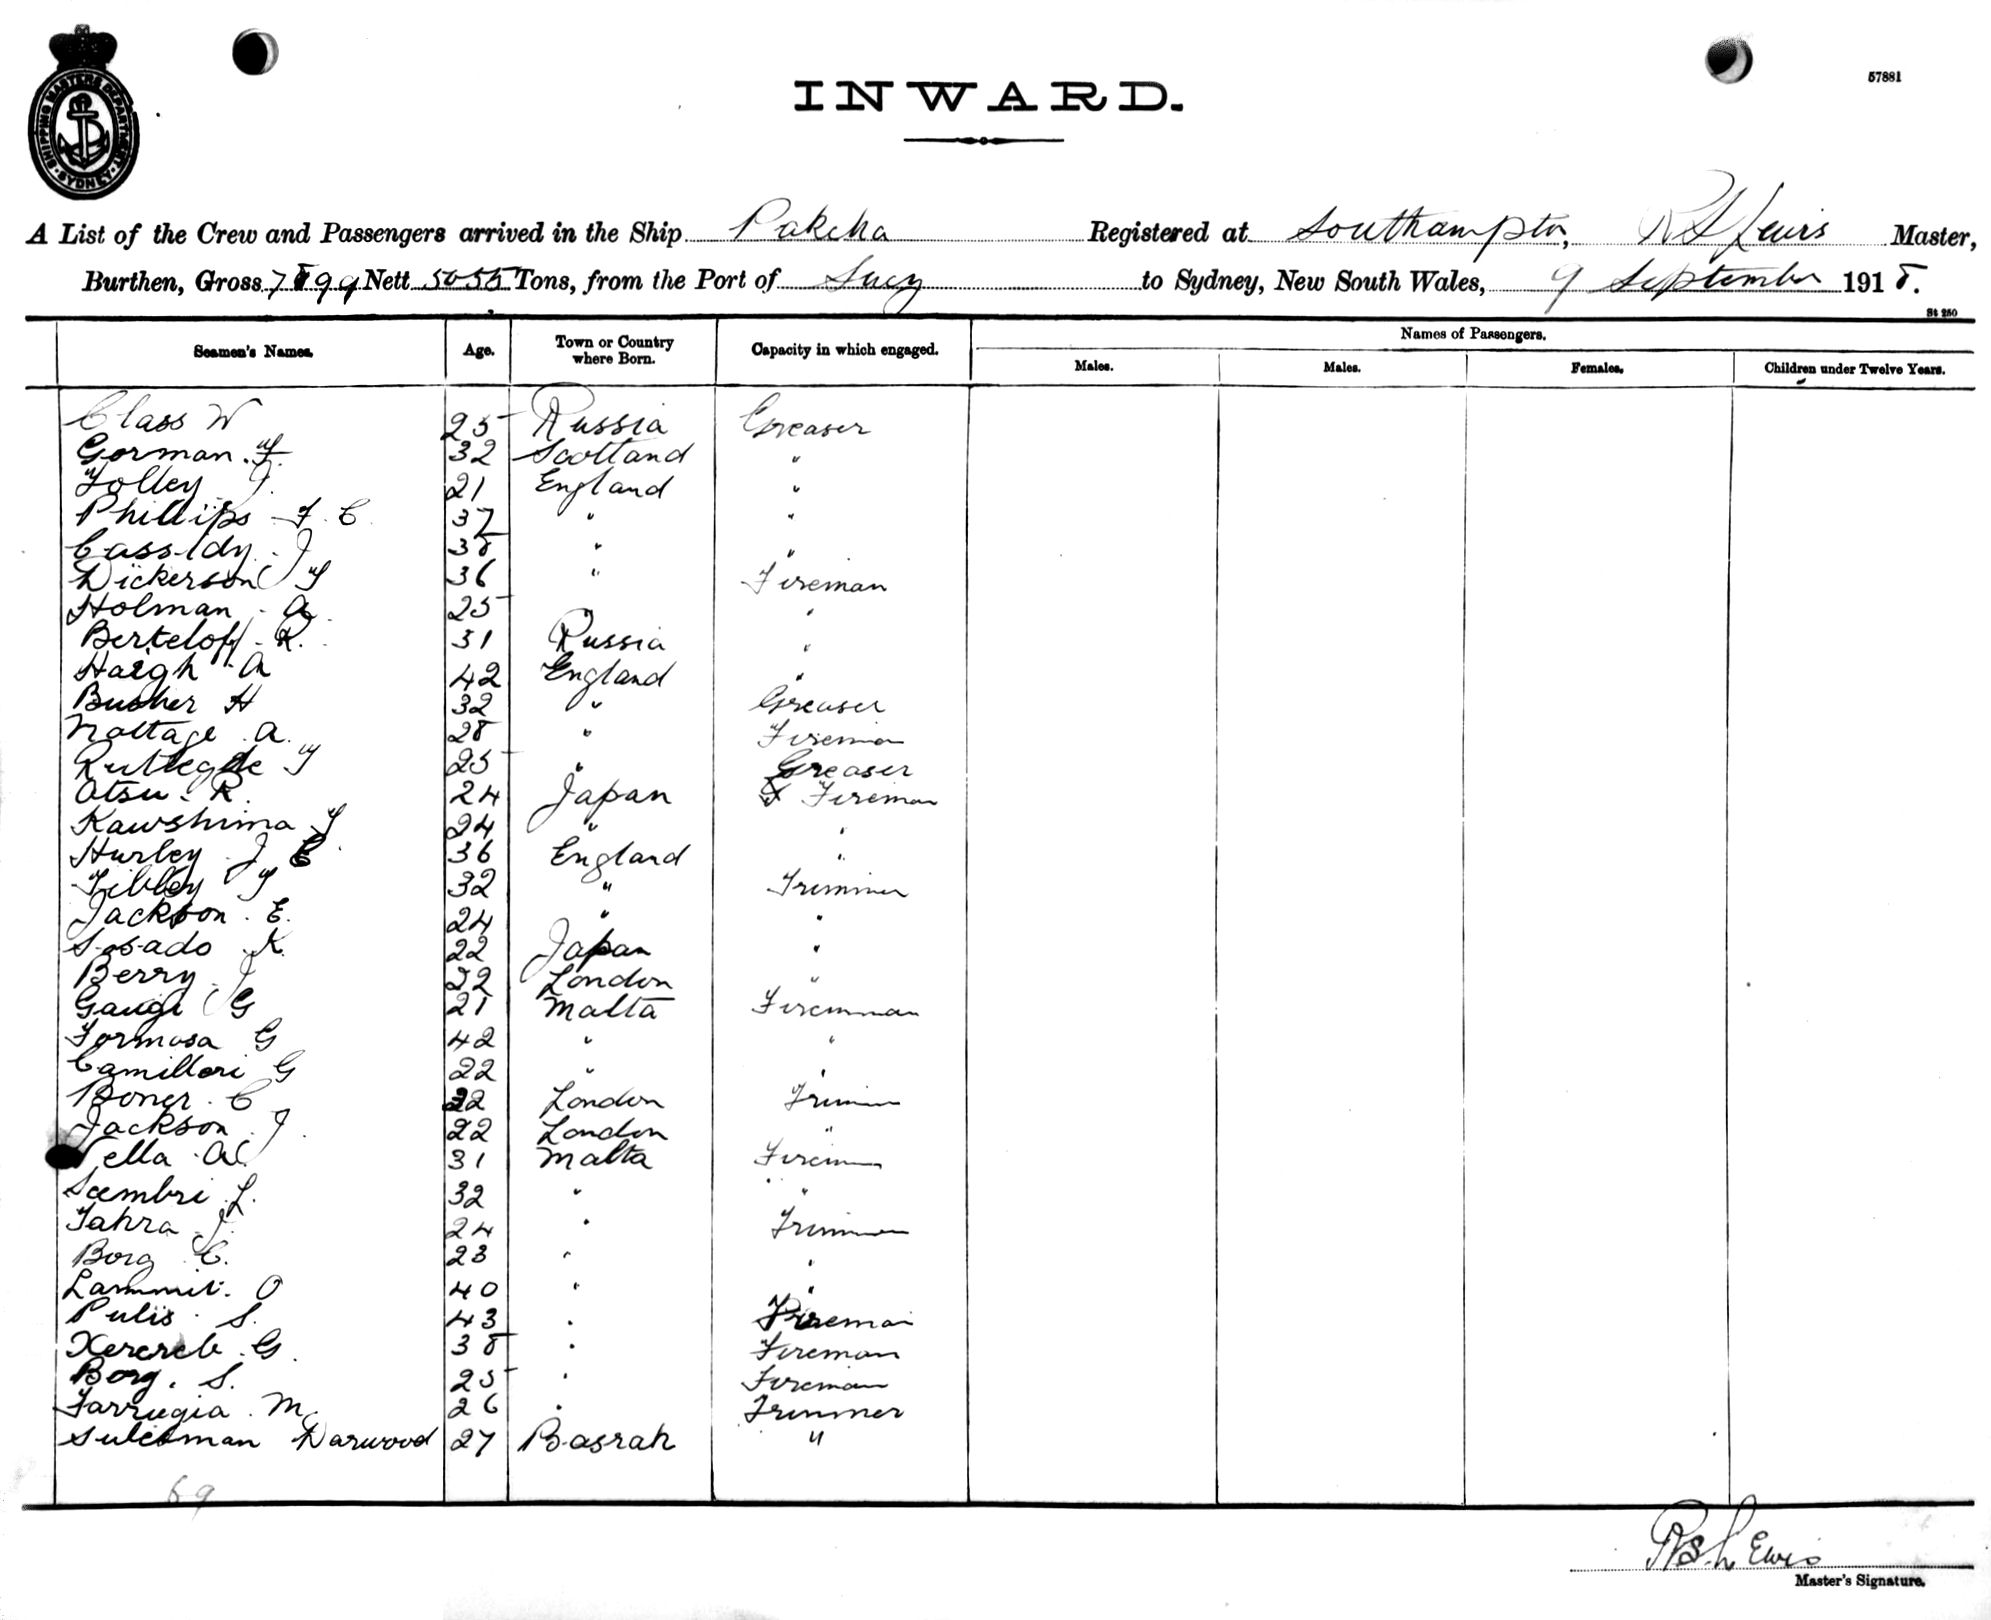 SHIPPING MASTERS DEPARTMENT SYDNEY
57881
INWARD.
A List of the Crew and Passengers arrived in the Ship Pakeha Registered at Southampton, R S Lewis Master,
Burthen, Gross 7899 Nett 5055 Tons, from the Port of Suez to Sydney, New South Wales, 9 September 1918.
St 250
Seamen's Names. Age. Town or Country where Born. Capacity in which engaged. Names of Passengers.
Males. Males. Females. Children under Twelve Years.
Class W 25 Russia Greaser
Gorman 32 Scotland "
Folley J. 21 England "
Phillips F. C. 37 " "
Cassidy J 38 " "
Dickerson 36 " Fireman
Holman A 25 " "
Berteloff R. 31 Russia "
Haigh A 42 England "
Busher H 32 " Greaser
Nottage A. 28 " Fireman
25 " Greaser
Otsu R. 24 Japan Fireman
Kawshima 24 " "
Hurley J 36 England "
Tibbey 32 " Trimmer
Jackson E. 24 " "
Sosado K 22 Japan "
Berry J 22 London "
Gauge G 21 Malta Firemman
Formosa G 42 " "
Camilleri G 22 " "
Boner C 22 London Trimmer
Jackson J. 22 London "
Vella A 31 Malta Fireman
Sambri L. 32 " "
Tahra J. 24 " Trimmer
Borg C. 23 " "
Lammit O 40 " "
Pulis S. 43 " Fireman
Xerereb G. 38 " Fireman
Borg. S. 25 " Fireman
Farrugia M 26 " Trimmer
Suleman Darwood 27 Basrah "
69
R S Lewis
Master's Signature.